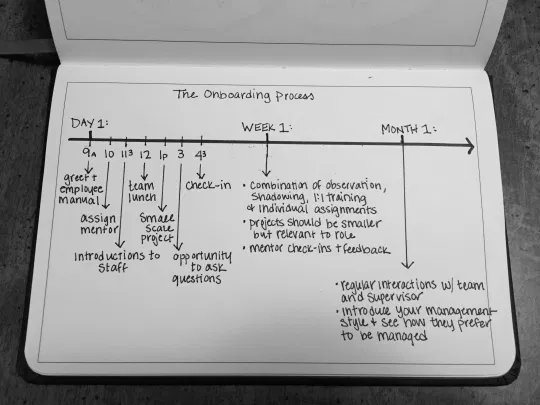 The Onboarding Process
DAY 1:
WEEK 1:
MONTH 1:
9A 10 11³ 12 1P 3 4³
greet +
employee
manual
assign
mentor
introductions to
staff
team
lunch
small
scale
project
opportunity
to ask
questions
check-in
• combination of observation,
shadowing, 1:1 training
& individual assignments
• projects should be smaller
but relevant to role
• mentor check-ins + feedback
• regular interactions w/ team
and supervisor
• introduce your management
style + see how they prefer
to be managed